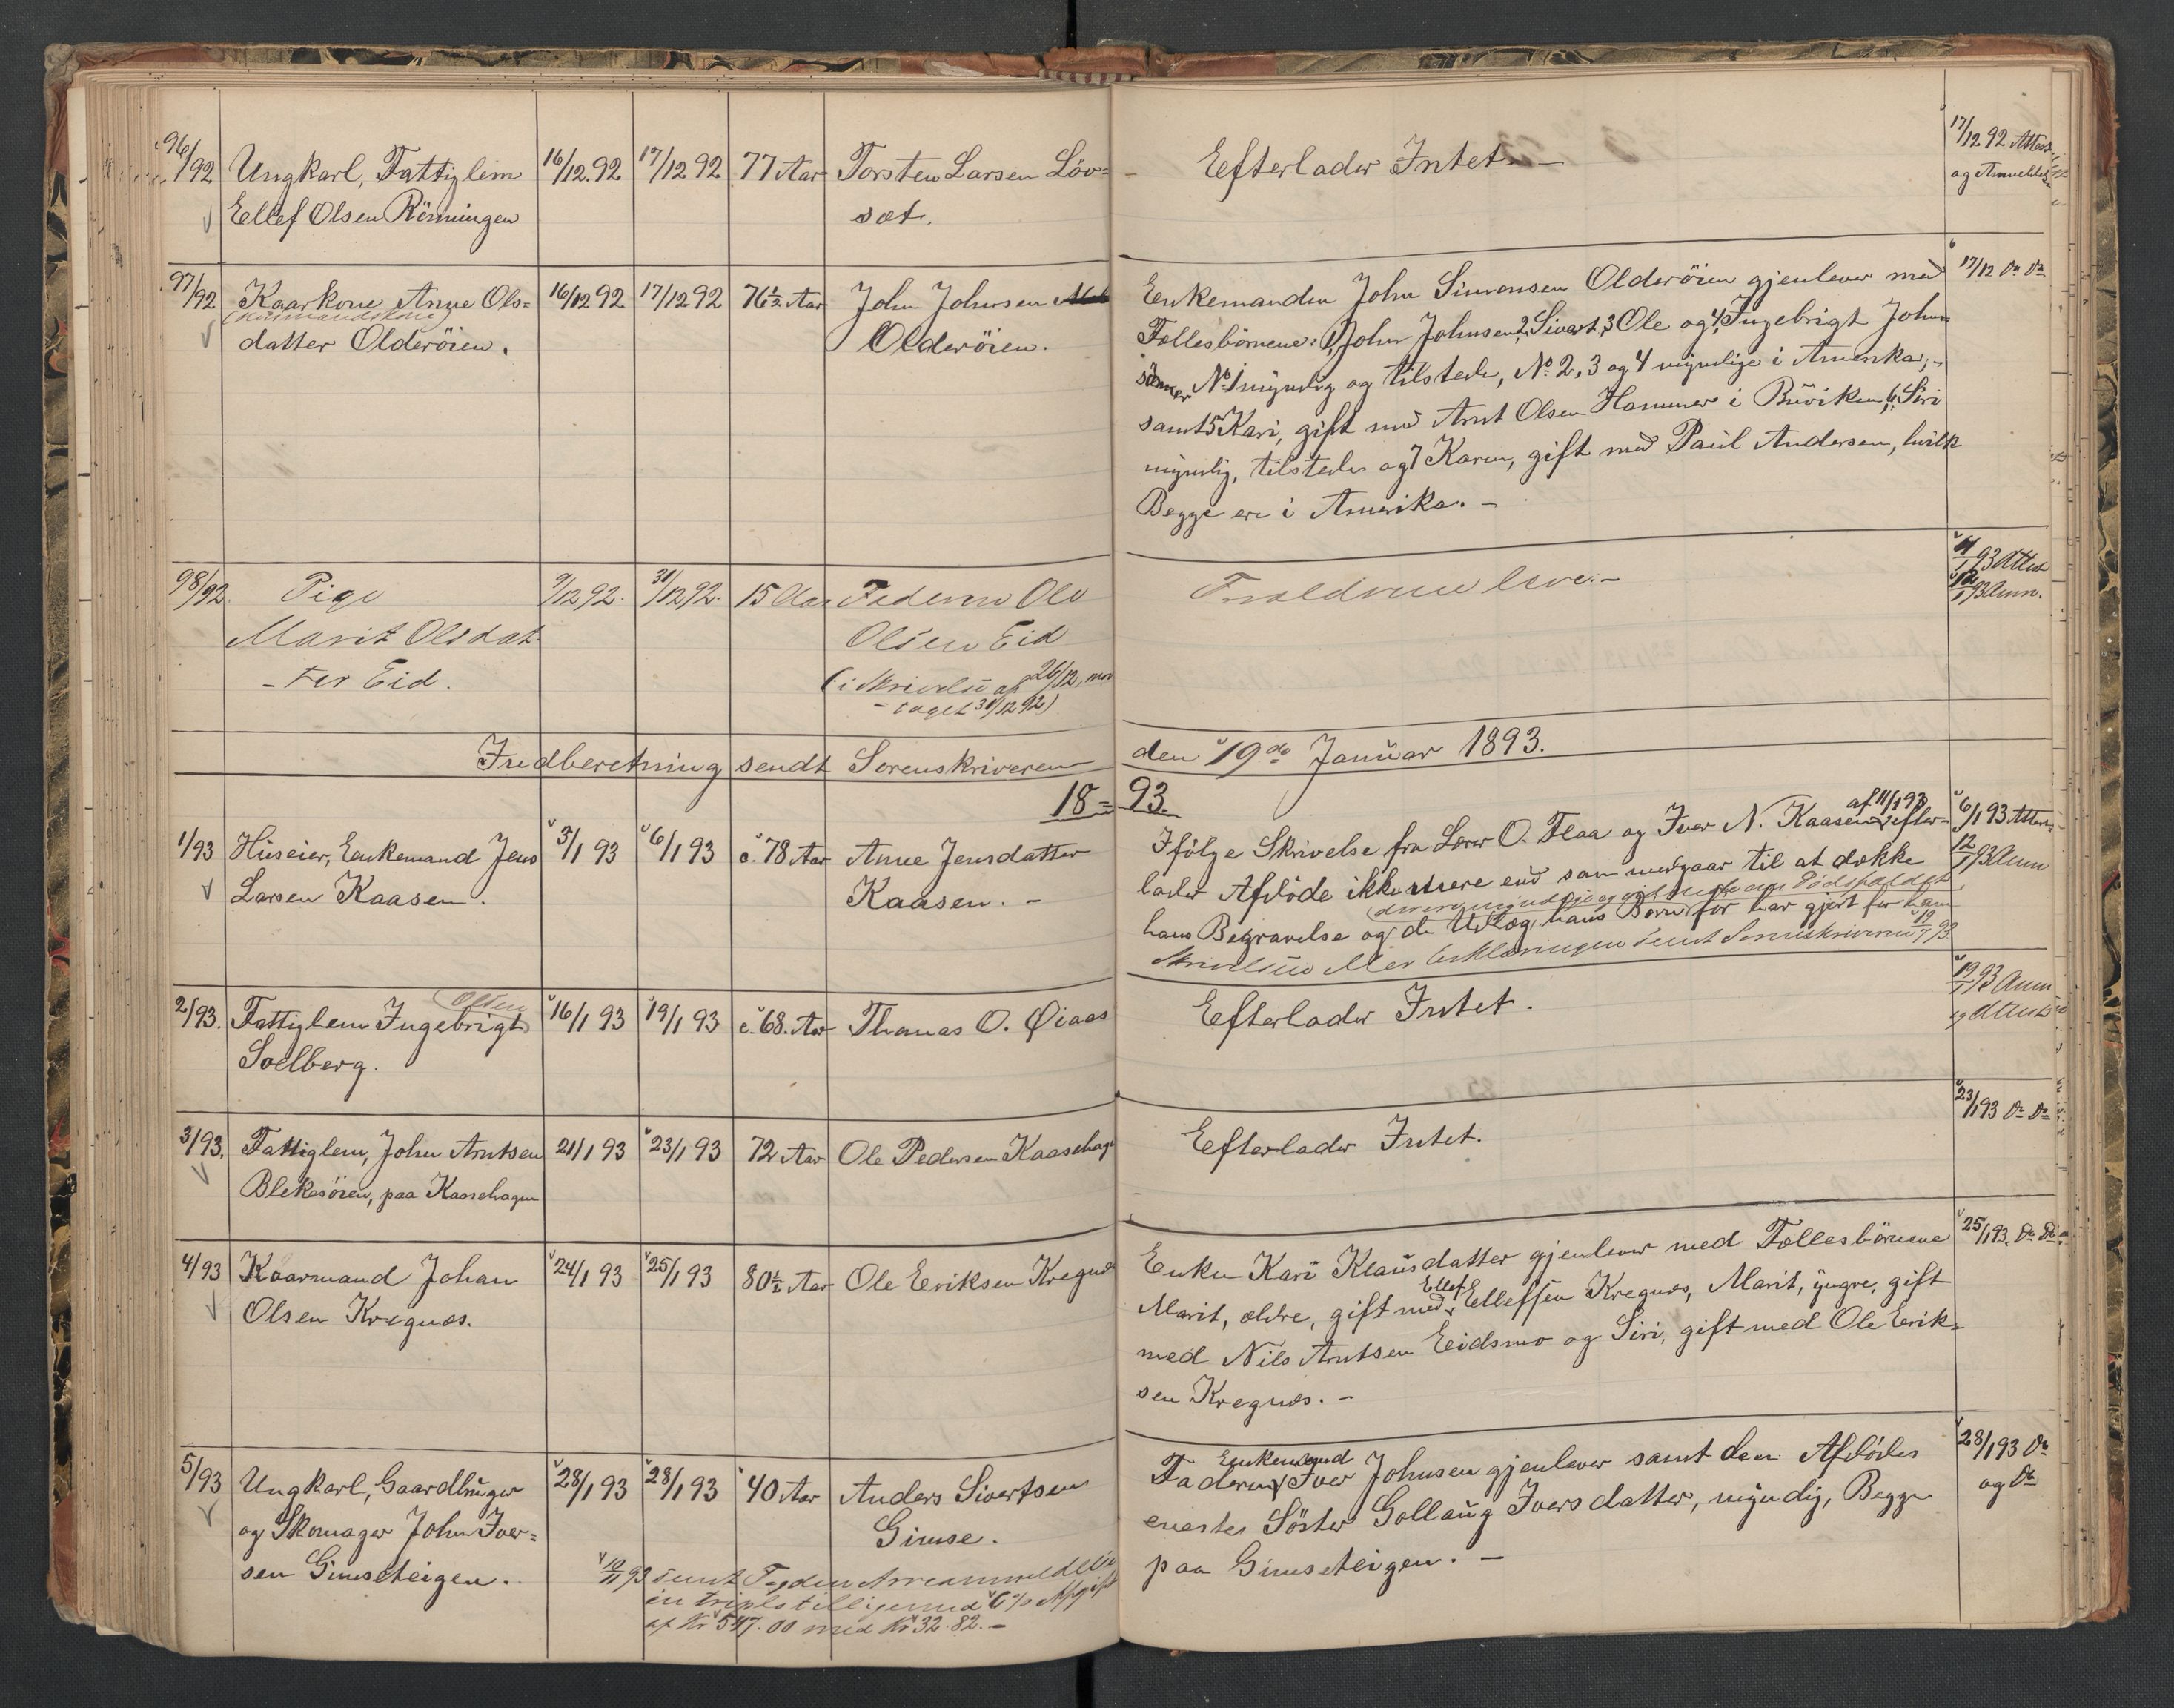 96/92 Ungkarl, Fattiglem 16/12.92 17/12 92 77 Aar Torsten Larsen Löv=
Ellef Olsen Rönningen sæt.
Efterlader Intet. —
17/12 92 Attest
og Anmeldelse
97/92 Kaarkone Anne Ols= 16/12 92 17/12 92 76½ Aar John Johnsen
(Husmandskone)
datter Olderöien. Olderöien.
Enkemanden John Simonsen Olderöien gjenlever med
Fællesbörnene: 1, John Johnsen, 2, Sivert, 3, Ole og 4, Ingebrigt John
sönner No 1 myndig og tilstede, No 2, 3 og 4 myndige i Amerika; -
samt 5 Kari, gift med Arnt Olsen Hammer i Büviken, 6, Siri
myndig, tilstede og 7 Karen, gift med Paul Andersen, hvilk
Begge ere i Amerika. -
17/12 Do Do
98/92. Pige 9/12 92. 31/12 92. 15 Aar Faderen Ole
Marit Olsdat Olsen Eid
-ter Eid. (i Skrivelse af 26/12, mod
-taget 31/12 92)
Forældrene leve. -
4/1 93 Attest
12/1 93 Anm.
Indberetning sendt Sorenskriveren den 19de Januar 1893.
18 = 93.
1/93 Huseier, Enkemand Jens 3/1 93 6/1 93 c. 78 Aar Anne Jensdatter
Larsen Kaasen. Kaasen. -
af 11/1 93
Ifölge Skrivelse fra Lærer O. Flaa og Iver N. Kaasen efter-
lader Afdöde ikke mere end som medgaar til at dække
hans Begravelse og de Udlæg, hans Börn för har gjort for ham
Skrivelsen Erklæringen sendt Sorenskriveren 19/1 93
6/1 93 Attest
12/1 93 Anm
2/93. Fattiglem Ingebrigt Olsen 16/1 93 19/1 93 c. 68. Aar Thomas O. Øiaas
Solberg.
Efterlader Intet.
19/1 93 Anm
og Attest
3/93. Fattiglem, John Arntsen 21/1 93 23/1 93 72 Aar Ole Pedersen Kaasehag
Blekesöien, paa Kaasehagen
Efterlader Intet.
23/1 93 Do Do
4/93 Kaarmand Johan 24/1 93 25/1 93 80½ Aar Ole Eriksen Kregnæs
Olsen Kregnæs.
Enken Kari Klausdatter gjenlever med Fællesbörnene
Marit, ældre, gift med Ellef Elleffsen Kregnæs, Marit, yngre, gift
med Nils Arntsen Eidsmo og Siri, gift med Ole Erik=
sen Kregnæs. -
25/1 93. Do Do
5/93 Ungkarl, Gaardbruger 28/1 93 28/1 93 40 Aar Anders Sivertsen
og Skomager John Iver= Gimse.
sen Gimseteigen.
10/11 93 sendt Fogden Arveanmeldelse
in triplo tilligemed 6% Afgift
af Kr 547.00 med Kr 32.82. -
Enkemand
Faderen Iver Johnsen gjenlever samt den Afdödes
eneste Söster Gollaug Iversdatter, myndig, Begge
paa Gimseteigen. -
28/1 93 Do
og Do